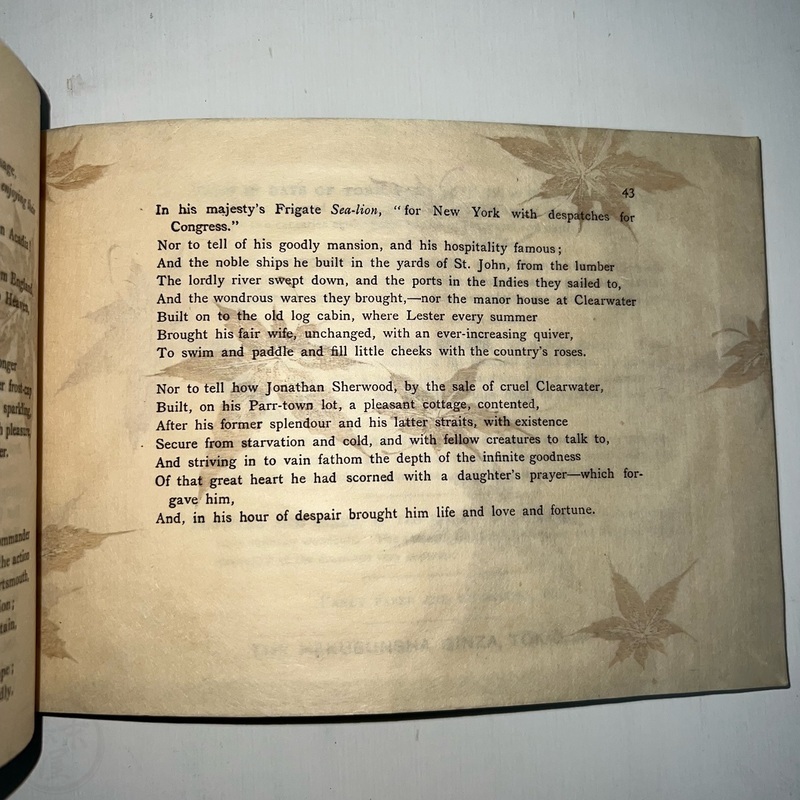 nage,
enjoying
n Acadia
m England
Heaven,
onger
r frost-cap
sparkling,
pleasure,
er.
ommander
he action
rtsmouth,
ion;
tain,
pe;
dly.
43
In his majesty's Frigate Sea-lion, "for New York with despatches for
Congress."
Nor to tell of his goodly mansion, and his hospitality famous;
And the noble ships he built in the yards of St. John, from the lumber
The lordly river swept down, and the ports in the Indies they sailed to,
And the wondrous wares they brought,—nor the manor house at Clearwater
Built on to the old log cabin, where Lester every summer
Brought his fair wife, unchanged, with an ever-increasing quiver,
To swim and paddle and fill little cheeks with the country's roses.
Nor to tell how Jonathan Sherwood, by the sale of cruel Clearwater,
Built, on his Parr-town lot, a pleasant cottage, contented,
After his former splendour and his latter straits, with existence
Secure from starvation and cold, and with fellow creatures to talk to,
And striving in to vain fathom the depth of the infinite goodness
Of that great heart he had scorned with a daughter's prayer—which for-
gave him,
And, in his hour of despair brought him life and love and fortune.
HAKUBUNSHA GINZA, TOKIO